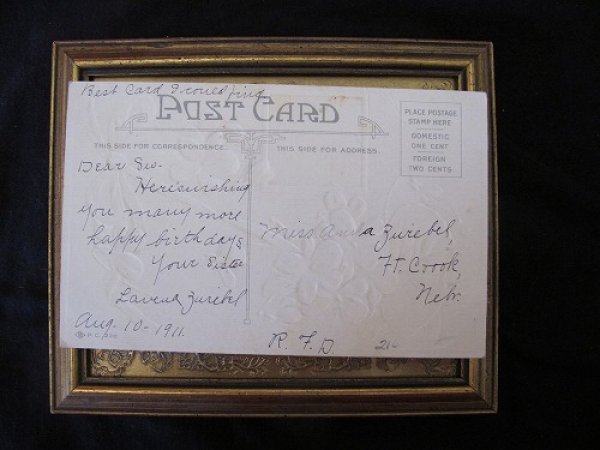 Best Card I could find
POST CARD
PLACE POSTAGE
STAMP HERE
DOMESTIC
ONE CENT
FOREIGN
TWO CENTS
THIS SIDE FOR CORRESPONDENCE.
THIS SIDE FOR ADDRESS.
Dear Sis.
Here is wishing
you many more
happy birthdays
Your Sister
Zurebel
Aug. 10 - 1911.
Miss Anna Zurebel,
Ft. Crook,
Nebr.
R. F. D.